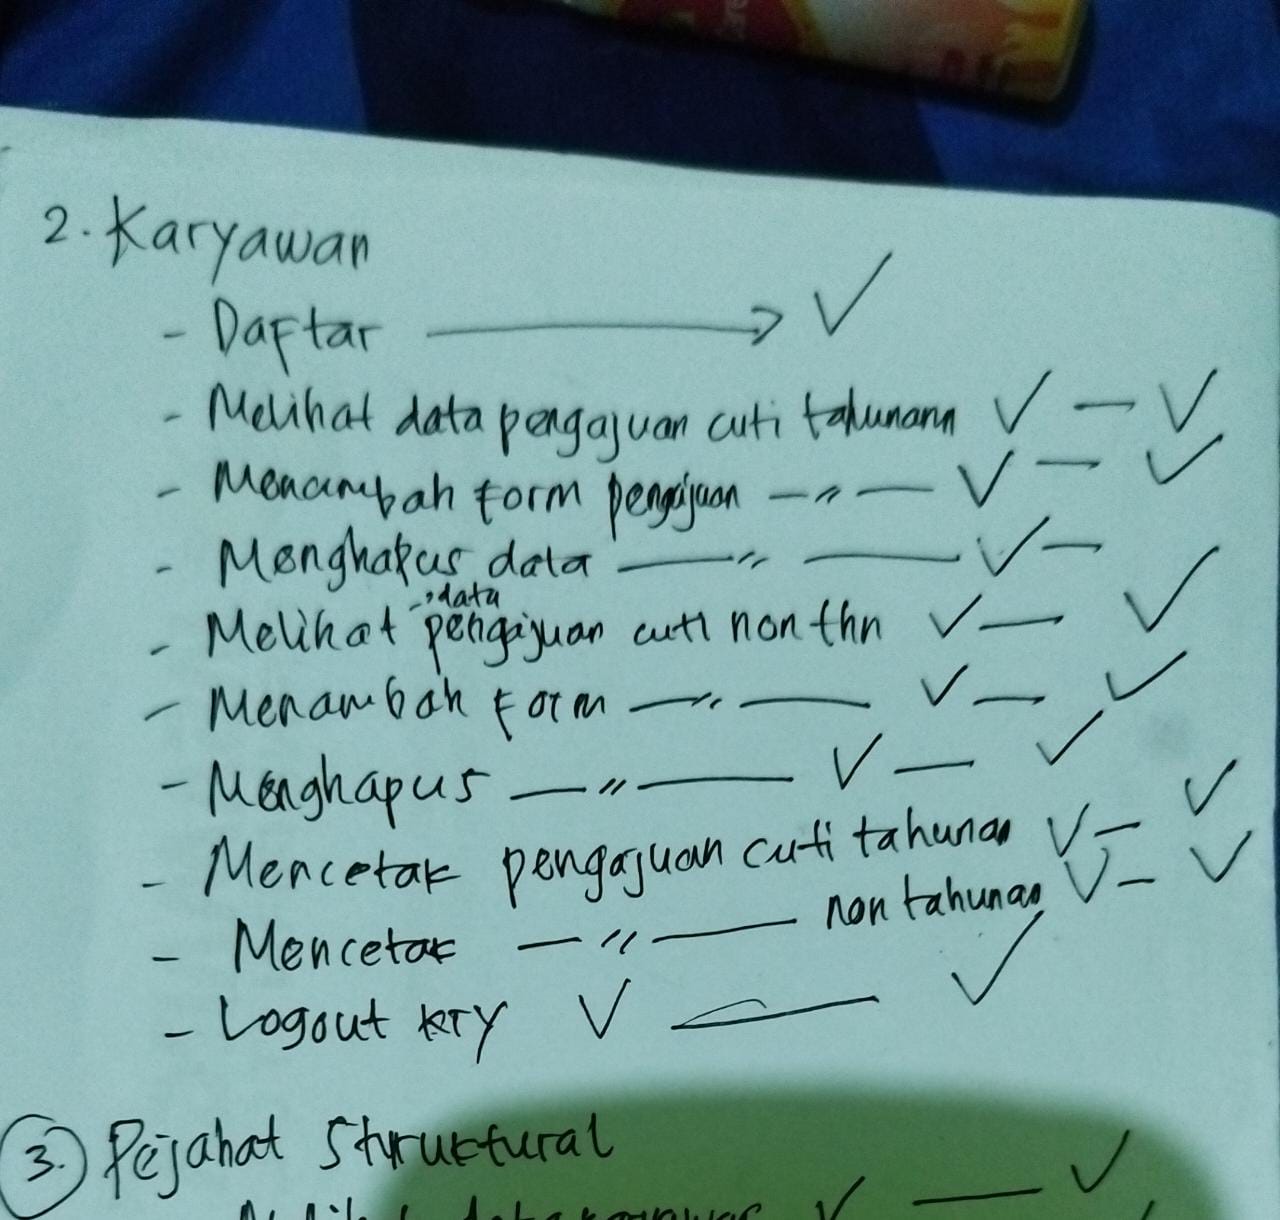 2. Karyawan
- Daftar → ✓
- Melihat data pengajuan cuti tahunann ✓ — ✓
- Menambah form pengajuan — 〃 — ✓ — ✓
- Menghapus data — 〃 — ✓ —
→ data
- Melihat pengajuan cuti non thn ✓ — ✓
- Menambah form — 〃 — ✓ — ✓
- Menghapus — 〃 — ✓ — ✓
- Mencetak pengajuan cuti tahunan ✓ — ✓
- Mencetak — 〃 — non tahunan ✓ — ✓
- Logout kry ✓ — ✓
3. Pejabat Struktural
✓ — ✓